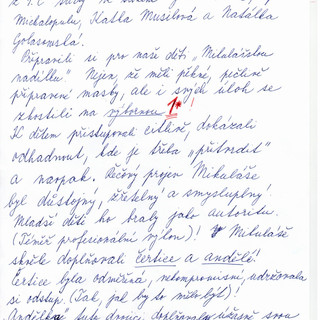 z 9.C
Michalopulu, Katka Musilová a Natálka
Golasowská.
Připravili se pro naše děti „Mikulášskou
nadílku". Nejen, že měli pěkné, pečivě
připravené masky, ale i svých úloh se
zhostili na výbornou 1* !
K dětem přistupovali citlivě, dokázali
odhadnout, kde je třeba „přitvrdit"
a naopak. Řečový projev Mikuláše
byl důstojný, zřetelný a smysluplný!
Mladší děti ho braly jako autoritu.
(Téměř profesionální výkon)! Mikuláše
skvěle doplňovali čertice a andělé!
Čertice byla odměřená, nekompromisní, udržovala
si odstup. (Tak, jak by to mělo být)!
„Andílka" tuto dvojici doplňovala svou